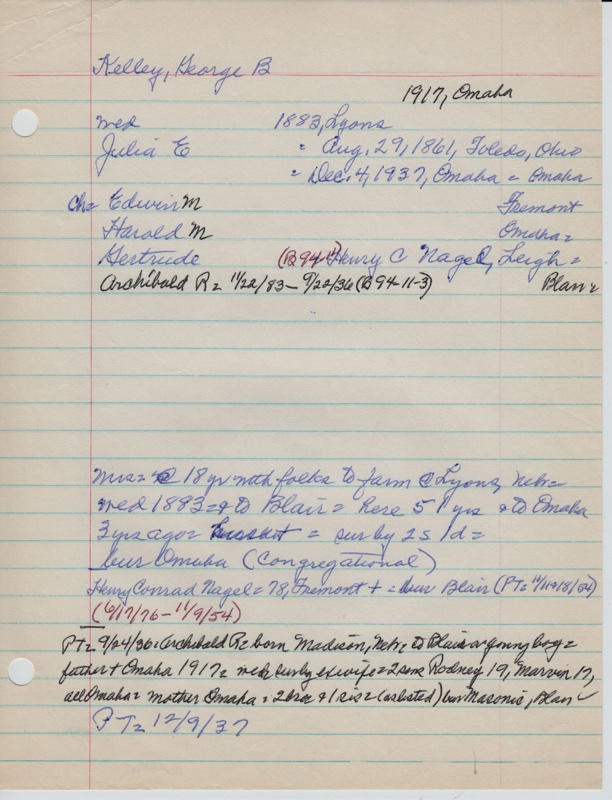 Kelley, George B
1917, Omaha
wed 1883, Lyons
Julia E = Aug. 29, 1861, Toledo, Ohio
= Dec. 4, 1937, Omaha = Omaha
ch= Edwin M Fremont
Harold M Omaha=
Gertrude (B94-11) Henry C Nagel, Leigh =
Archibald R= 11/22/83 - 9/22/36 (B94-11-3) Blair=
Mrs= @ 18 yr with folks to farm @ Lyons, Nebr=
wed 1883= & to Blair = here 51 yrs & to Omaha
3 yrs ago= = sur by 2s 1d =
bur Omaha (Congregational)
Henry Conrad Nagel = 78, Fremont + = bur Blair (PT= 11/11&18/54)
(6/17/76 - 11/9/54)
PT= 9/24/36= Archibald R= born Madison, Nebr= to Blair as young boy=
father + Omaha 1917= wed= sur by exwife= 2 sons Rodney 19, Marvin 17,
all Omaha= mother Omaha= 2 bro & 1 sis= (as listed) bur Masonic, Blair
PT= 12/9/37